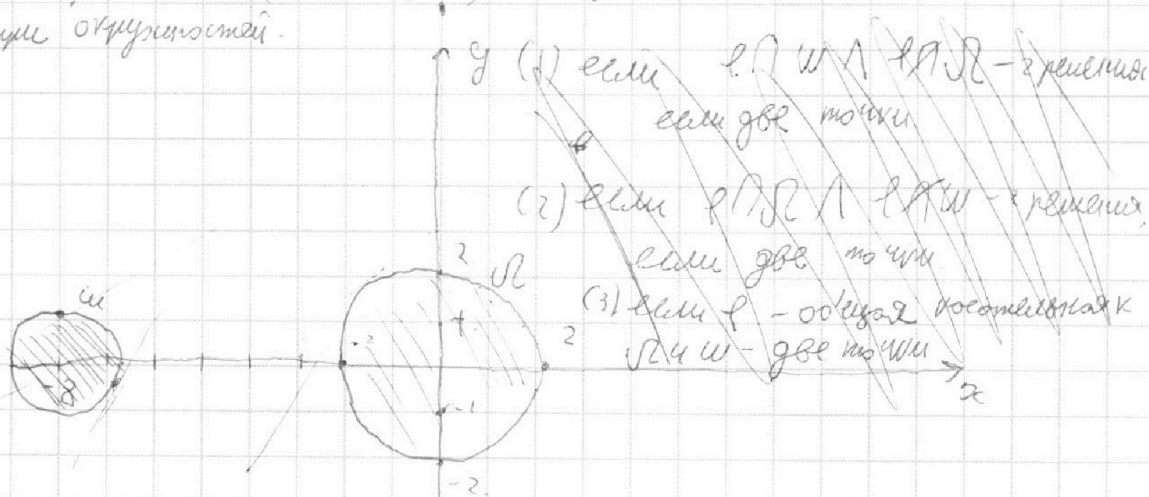 окружностей.
y (1) если l ∩ ω ∧ l ∩ Ω - 2 решения
если две точки
(2) если l ∩ Ω ∧ l ∩ ω - 2 решения,
если две точки
(3) если l - общая касательная к
Ω и ω - две точки
ω
2
Ω
-2
1
2
-8
-1
x
-2